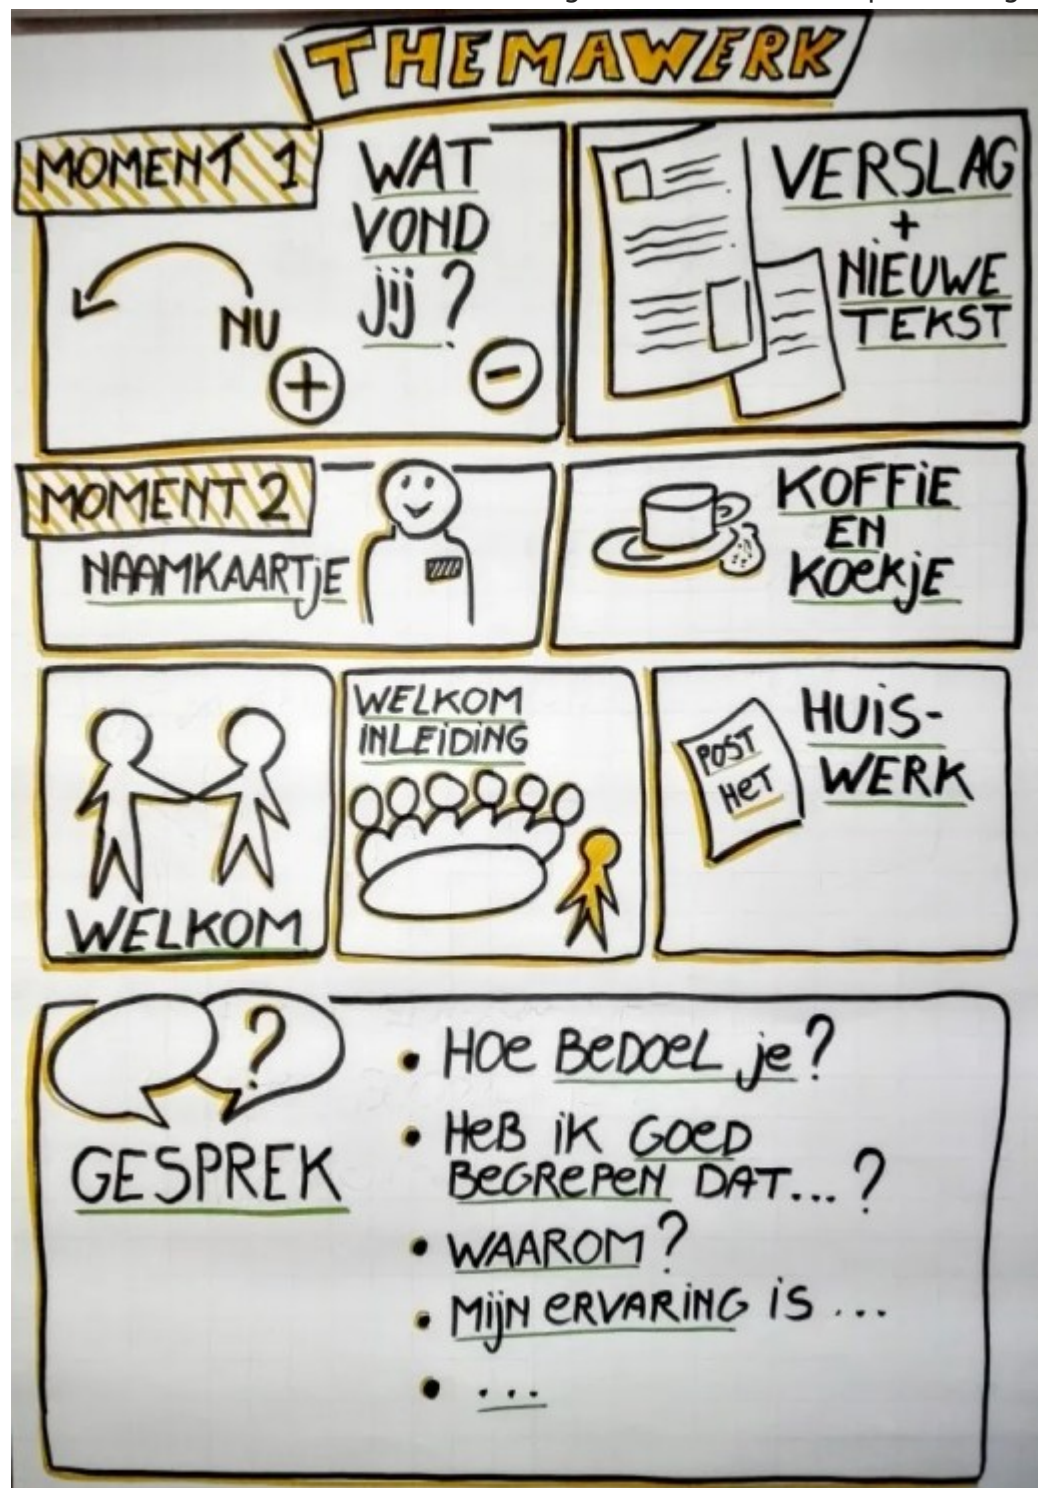 THEMAWERK
MOMENT 1
WAT
VOND
jij?
NU
+
-
VERSLAG
+
NIEUWE
TEKST
MOMENT 2
NAAMKAARTjE
KOFFiE
EN
KOekjE
WELKOM
WELKOM
INLEiDING
POST
HeT
HUiS-
WERK
?
GESPREK
• HOe BeDOeL je?
• HeB iK GOeD
BeGRePeN DAT...?
• WAAROM?
• MijN eRVARiNG iS ...
• ...